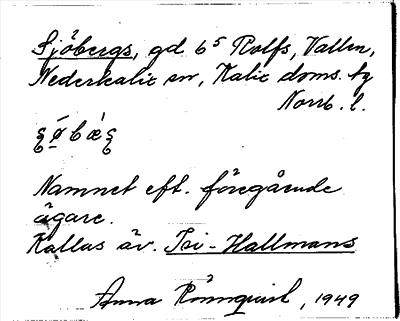 Sjöbergs, gd 6⁵ Rolfs, Vallen,
Nederkalix sn, Kalix doms. tg
Norrb. l.
Namnet eft. föregående
ägare.
Kallas äv. Isi-Hallmans
Anna Rönnquist, 1949